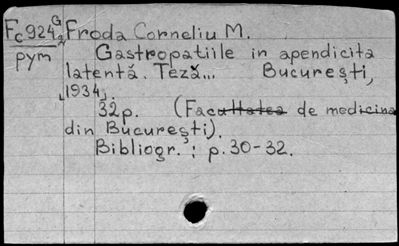 Fc924 G2 Froda Corneliu M.
pym Gastropatiile in apendicita
latentă. Teză... București,
[1934].
32p. (Facultatea de medicina
din București).
Bibliogr.: p.30-32.